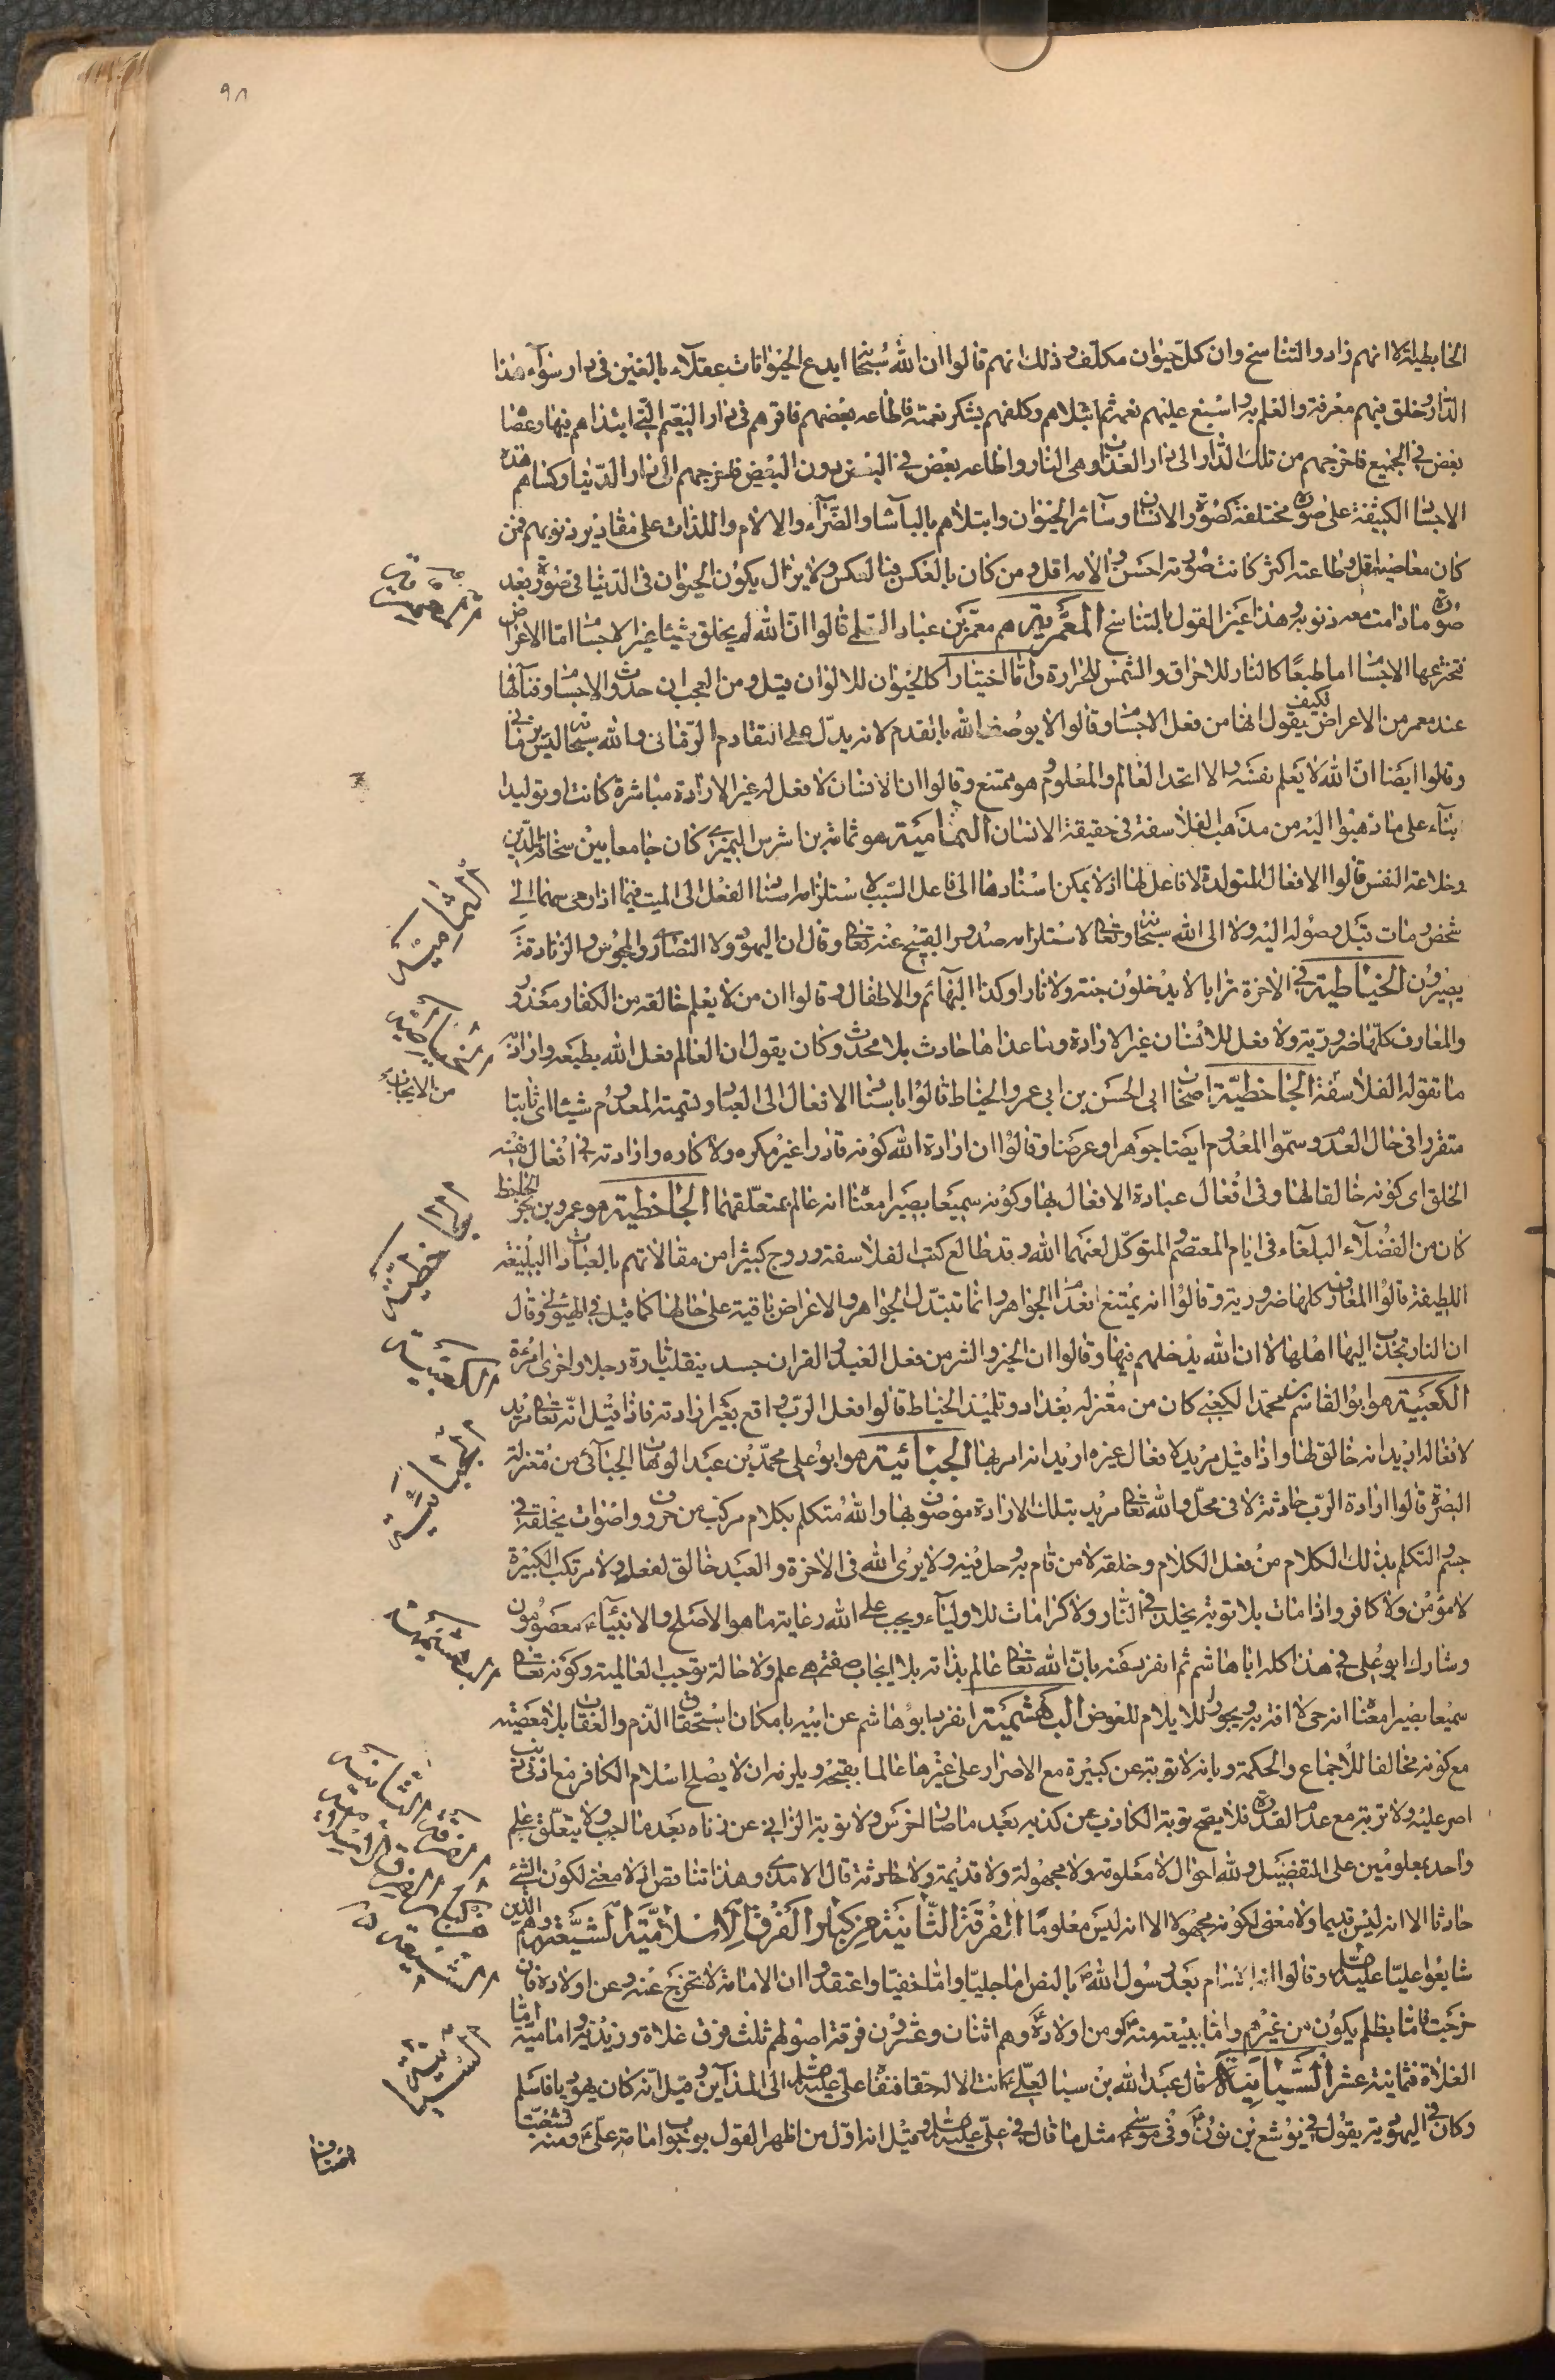 ٩٨
الخابطية الا انهم زادوا التناسخ وان كل حيوان مكلف وذلك انهم قالوا ان الله سبحانه ابدع الحيوانات عقلاء بالغين في دار سوآء هذا
الدار وخلق فيهم معرفة والعلم به واسبغ عليهم نعمه ثم ابتلاهم وكلفهم بشكر نعمته فاطاعه بعضهم فاقرهم في دار النعيم التي ابتداهم فيها وعصا
بعض في الجميع فاخرجهم من تلك الدار الى دار العذاب وهى النار واطاعه بعض في البعض دون البعض فاخرجهم الى دار الدنيا وكساهم هذه
الاجسام الكثيفة على صورة مختلفة كصورة الانسان وسآئر الحيوان وابتلاهم بالبأسآء والضرآء والالام واللذات على مقادير ذنوبهم فمن
كان معاصيه اقل وطاعته اكثر كانت صورته احسن والامه اقل ومن كان بالعكس فبالعكس ولا يزال يكون الحيوان في الدنيا في صورة بعد
صورة ما دامت معه ذنوبه وهذا عين القول بالتناسخ المعمرية هم معمر بن عباد السلمى قالوا ان الله لم يخلق شيئا غير الاجسام اما الاعراض
تخترعها الاجسام اما طبعا كالنار للاحراق والشمس للحرارة واما اختيارا كالحيوان للالوان قيل ومن العجب ان حدوث الاجسام وفنائها
عند معمر من الاعراض فكيف يقول انها من فعل الاجسام وقالوا لا يوصف الله بالقدم لانه يدل على التقادم الزمانى والله سبحانه ليس بزمانى
وقالوا ايضا ان الله لا يعلم نفسه والا اتحد العالم والمعلوم وهو ممتنع وقالوا ان الانسان لا فعل له غير الارادة مباشرة كانت او توليدا
بنآء على ما ذهبوا اليه من مذهب الفلاسفة في حقيقة الانسان الثمامية هو ثمامة بن اشرس النميرى كان جامعا بين سخافة الدين
وخلاعة النفس قالوا الافعال المتولدة لا فاعل لها اذ لا يمكن اسنادها الى فاعل السبب لاستلزامه اسناد الفعل الى الميت فيما اذا رمى سهما الى
شخص ومات قبل وصوله اليه ولا الى الله سبحانه وتعالى لاستلزامه صدور القبيح عنه تعالى وقال ان اليهود ولا النصارى والمجوس والزنادقة
يصيرون الخياطية في الاخرة ترابا لا يدخلون جنة ولا نارا وكذا البهآئم والاطفال وقالوا ان من لا يعلم خالقه من الكفار معذور
والمعارف كلها ضرورية ولا فعل للانسان غير الارادة وما عداها حادث بلا محدث وكان يقول ان العالم فعل الله بطبعه وارادة
ما تقوله الفلاسفة الجاحظية اصحاب ابى الحسن بن ابى عمرو الخياط قالوا باسناد الافعال الى العباد وتسمية المعدوم شيئا اى ثابتا
متقررا في حال العدم وسموا المعدوم ايضا جوهرا وعرضا وقالوا ان ارادة الله كونه قادرا غير مكره ولا كاره وارادته في افعال نفسه
الخلق اى كونه خالقا لها وفى افعال عباده الافعال بها وكونه سميعا بصيرا معناه انه عالم بمتعلقهما الجاحظية هو عمرو بن بحر الجاحظ
كان من الفضلآء البلغآء في ايام المعتصم والمتوكل لعنهما الله وقد طالع كتب الفلاسفة وروج كثيرا من مقالاتهم بالعبارات البليغة
اللطيفة قالوا المعارف كلها ضرورية وقالوا انه يمتنع انعدام الجواهر وانما تتبدل الجواهر والاعراض باقية على حالها كما قيل في الهيولى وقال
ان النار تجذب اليها اهلها لا ان الله يدخلهم فيها وقالوا ان الخير والشر من فعل العبد والقران جسد ينقلب تارة رجلا واخرى امرأة
الكعبية هو ابو القاسم بن محمد الكعبى كان من معتزلة بغداد وتلميذ الخياط قالوا فعل الرب واقع بغير ارادته فاذا قيل انه تعالى مريد
لافعاله اريد انه خالق لها واذا قيل مريد لافعال غيره اريد انه امر بها الجبائية هو ابو على محمد بن عبد الوهاب الجبائى من معتزلة
البصرة قالوا ارادة الرب حادثة لا في محل والله تعالى مريد بتلك الارادة موصوف بها والله متكلم بكلام مركب من حروف واصوات يخلقه في
جسم والمتكلم بذلك الكلام من فعل الكلام وخلقه لا من قام به وحل فيه ولا يرى الله في الاخرة والعبد خالق لفعله ولا مرتكب الكبيرة
لا مؤمن ولا كافر واذا مات بلا توبة يخلد في النار ولا كرامات للاوليآء ويجب على الله رعاية ما هو الاصلح والانبيآء معصومون
وشارك ابو على في هذا كله ابا هاشم ثم انفرد عنه بان الله تعالى عالم بذاته بلا ايجاب صفة هى علم ولا حالة توجب العالمية وكونه تعالى
سميعا بصيرا معناه انه حى لا افة به ويجوز للايلام للعوض البهشمية انفرد ابو هاشم عن ابيه بامكان استحقاق الذم والعقاب بلا معصية
مع كونه مخالفا للاجماع والحكمة وبانه لا توبة عن كبيرة مع الاصرار على غيرها عالما بقبحه ويلزمه ان لا يصلح اسلام الكافر مع ادنى ذنب
اصر عليه ولا توبة مع عدم القدرة فلا يصح توبة الكاذب عن كذبه بعد ما صار اخرس ولا توبة الزانى عن زناه بعد ما جب ولا يتعلق علم
واحد بمعلومين على التفصيل ولله احوال لا معلومة ولا مجهولة ولا قديمة ولا حادثة قال الامدى وهذا تناقض اذ لا معنى لكون الشئ
حادثا الا انه ليس قديما ولا معنى لكونه مجهولا الا انه ليس معلوما الفرقة الثانية من كبار الفرق الاسلامية الشيعة وهم الذين
شايعوا عليا عليه السلام وقالوا انه الامام بعد رسول الله بالنص اما جليا واما خفيا واعتقدوا ان الامامة لا تخرج عنه وعن اولاده فان
خرجت فاما بظلم يكون من غيرهم واما ببيعة منه او من اولاده وهم اثنان وعشرون فرقة اصولهم ثلث فرق غلاة وزيدية وامامية اما
الغلاة فثمانية عشر السبائية قال عبد الله بن سبا لعلى انت الاله حقا فنفاه على عليه السلام الى المدآين وقيل انه كان يهوديا فاسلم
وكان في اليهودية يقول في يوشع بن نون وفى موسى مثل ما قال في على عليه السلام وقيل انه اول من اظهر القول بوجوب امامة على ومنه تشعبت
اصناف
المعمرية
الثمامية
الخياطية
من الايجاب
الجاحظية
الكعبية
الجبائية
البهشمية
الفرقة الثانية
من كبار الفرق الاسلامية
الشيعة
السبائية